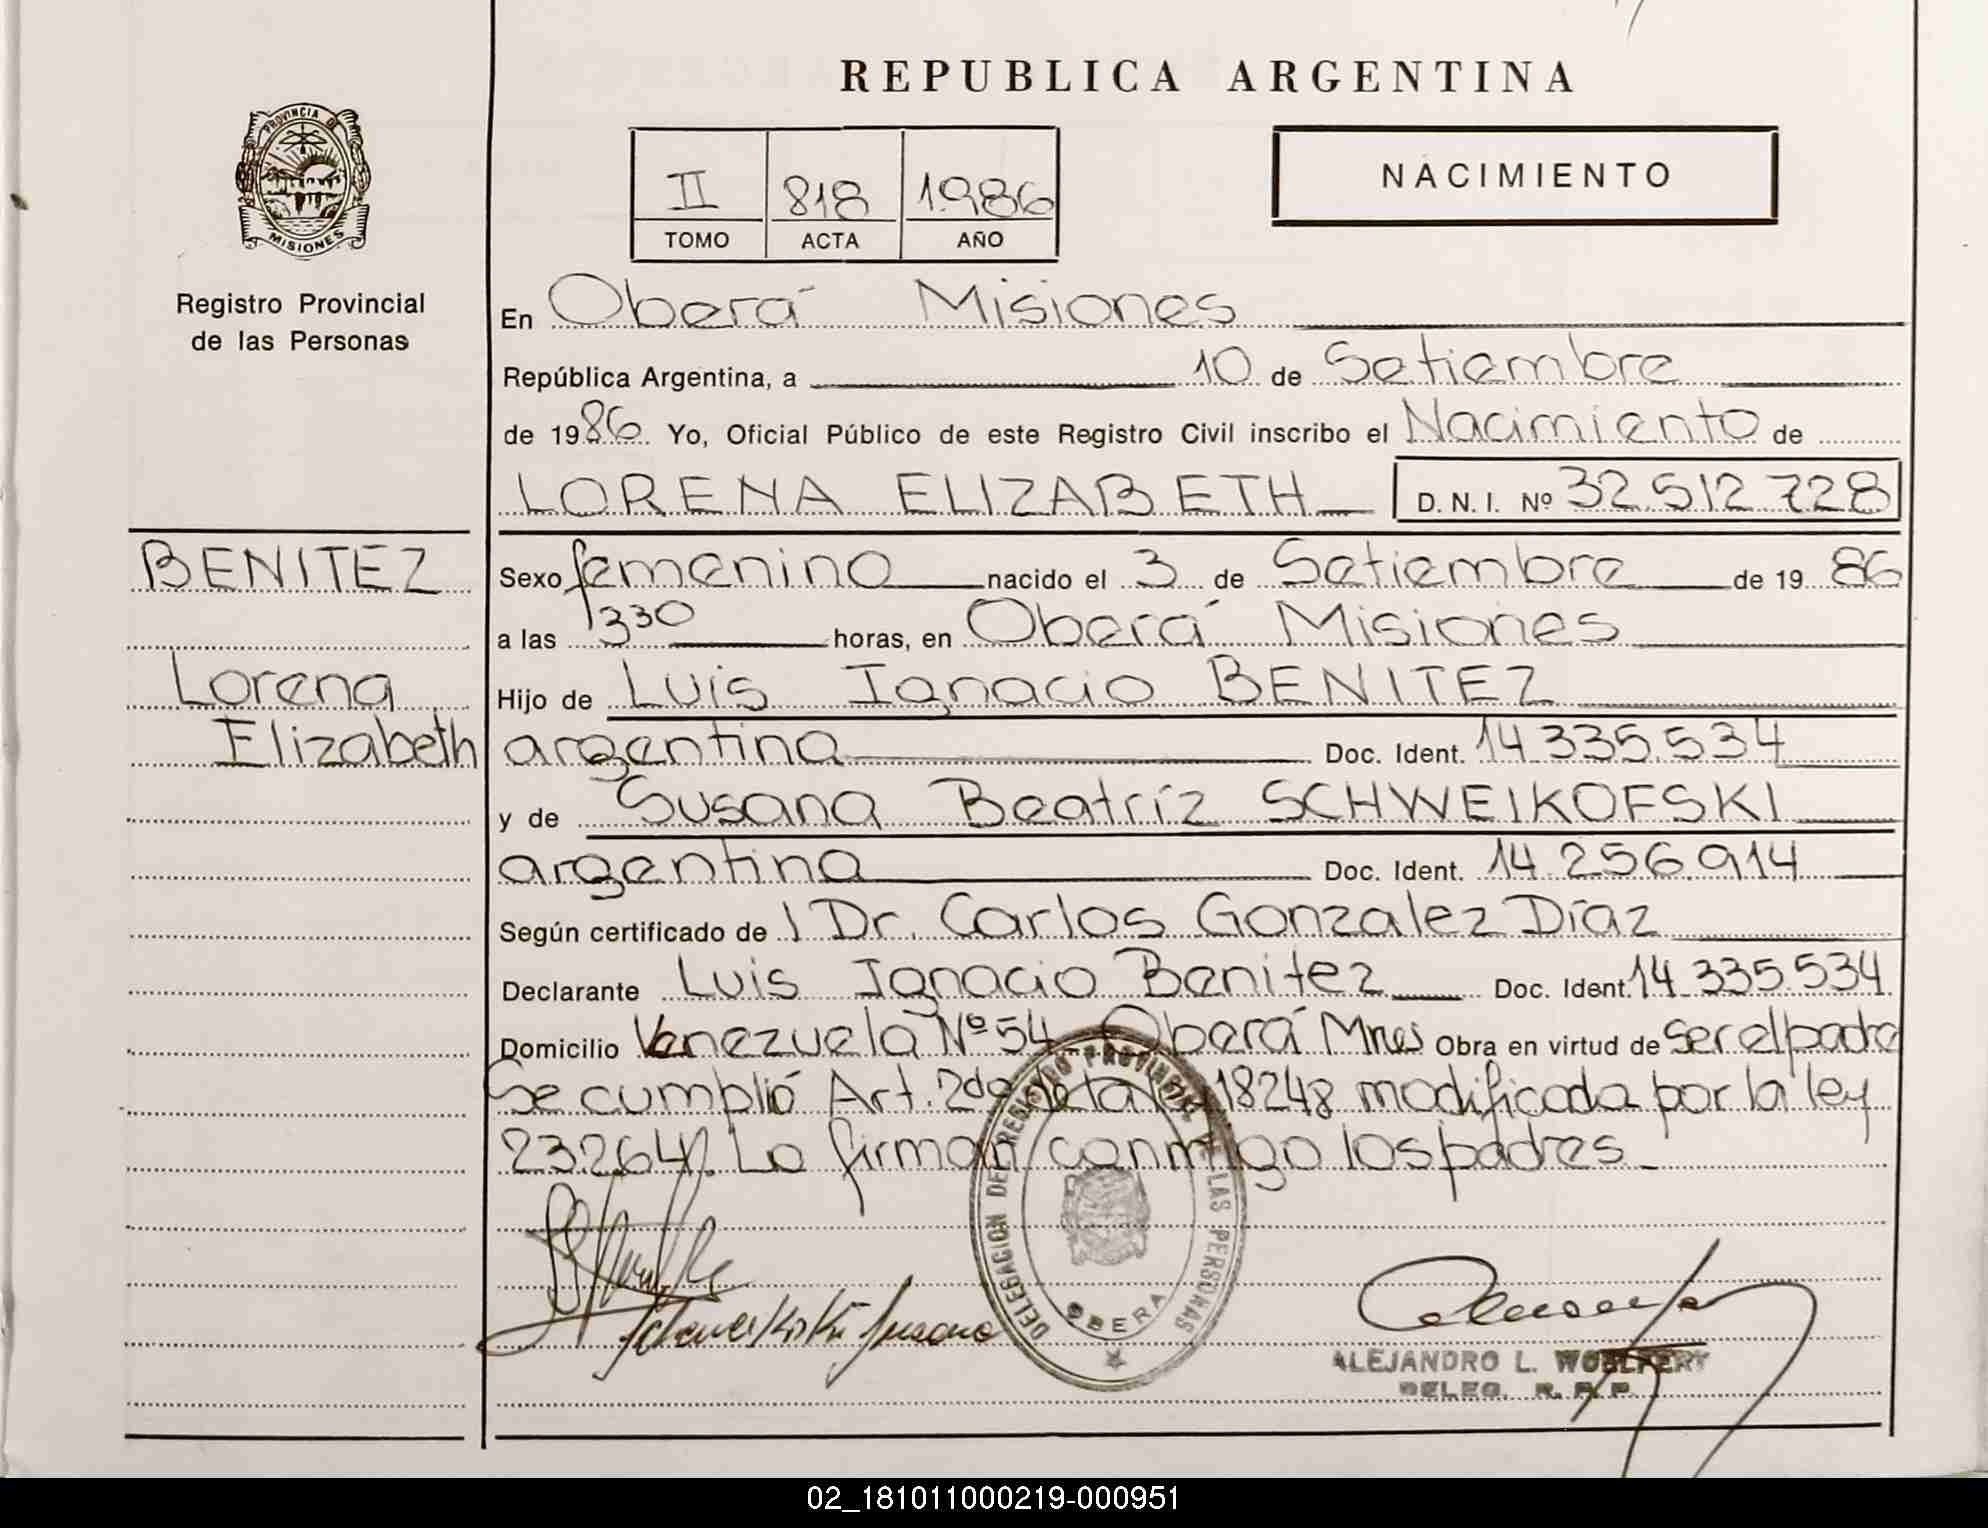 REPUBLICA ARGENTINA
PROVINCIA DE
MISIONES
II 818 1986
TOMO ACTA AÑO
NACIMIENTO
Registro Provincial
de las Personas
En Oberá Misiones
República Argentina, a 10 de Setiembre
de 1986 Yo, Oficial Público de este Registro Civil inscribo el Nacimiento de
LORENA ELIZABETH D. N. I. Nº 32.512.728
BENITEZ
Lorena
Elizabeth
Sexo femenino nacido el 3 de Setiembre de 19 86
a las 1330 horas, en Oberá Misiones
Hijo de Luis Ignacio BENITEZ
argentina Doc. Ident. 14.335.534
y de Susana Beatríz SCHWEIKOFSKI
argentina Doc. Ident. 14.256.914
Según certificado de / Dr. Carlos Gonzalez Díaz
Declarante Luis Ignacio Benitez Doc. Ident. 14.335.534
Domicilio Venezuela Nº 54 Oberá Mnes Obra en virtud de ser el padre
Se cumplió Art. 2do de la 18248 modificada por la ley
23.264/. La firman conmigo los padres.
DELEGACION DEL REGISTRO PROVINCIAL DE LAS PERSONAS
OBERA
Susana
ALEJANDRO L.
DELEG. R. P. P.
02_181011000219-000951